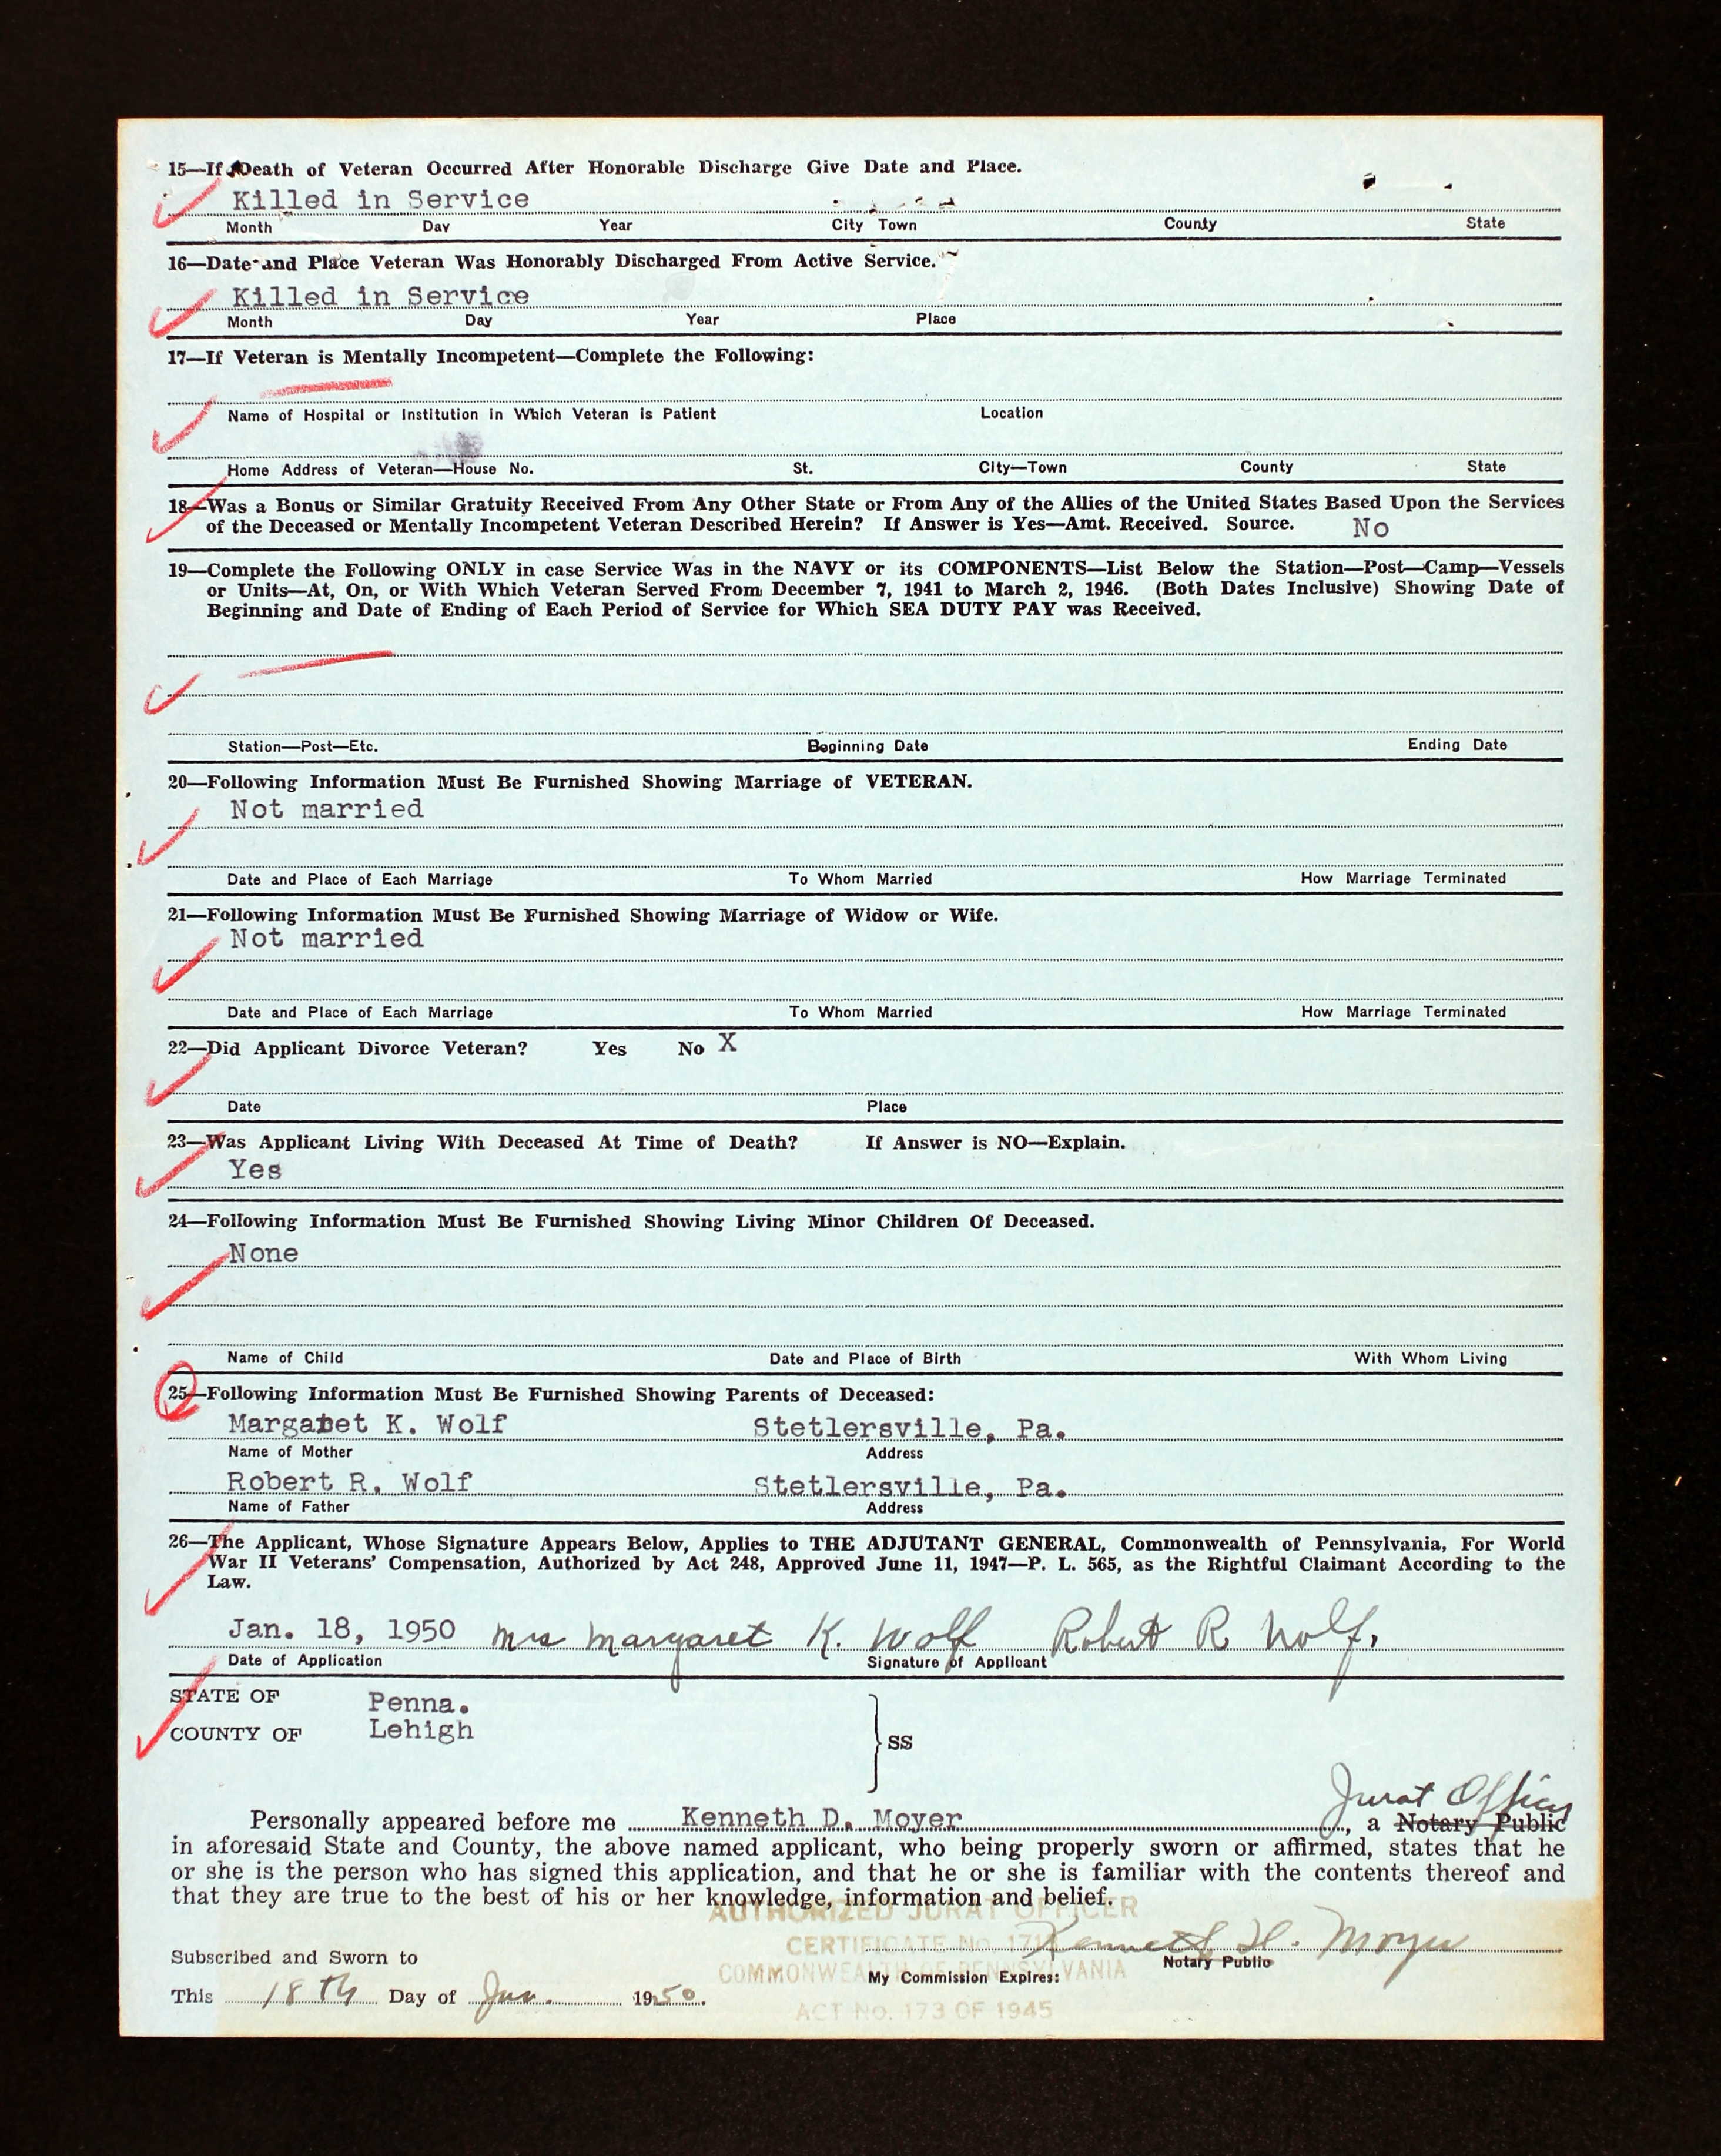 15—If Death of Veteran Occurred After Honorable Discharge Give Date and Place.
Killed in Service
Month Day Year City Town County State
16—Date and Place Veteran Was Honorably Discharged From Active Service.
Killed in Service
Month Day Year Place
17—If Veteran is Mentally Incompetent—Complete the Following:
Name of Hospital or Institution in Which Veteran is Patient Location
Home Address of Veteran—House No. St. City—Town County State
18—Was a Bonus or Similar Gratuity Received From Any Other State or From Any of the Allies of the United States Based Upon the Services
of the Deceased or Mentally Incompetent Veteran Described Herein? If Answer is Yes—Amt. Received. Source. No
19—Complete the Following ONLY in case Service Was in the NAVY or its COMPONENTS—List Below the Station—Post—Camp—Vessels
or Units—At, On, or With Which Veteran Served From December 7, 1941 to March 2, 1946. (Both Dates Inclusive) Showing Date of
Beginning and Date of Ending of Each Period of Service for Which SEA DUTY PAY was Received.
Station—Post—Etc. Beginning Date Ending Date
20—Following Information Must Be Furnished Showing Marriage of VETERAN.
Not married
Date and Place of Each Marriage To Whom Married How Marriage Terminated
21—Following Information Must Be Furnished Showing Marriage of Widow or Wife.
Not married
Date and Place of Each Marriage To Whom Married How Marriage Terminated
22—Did Applicant Divorce Veteran? Yes No X
Date Place
23—Was Applicant Living With Deceased At Time of Death? If Answer is NO—Explain.
Yes
24—Following Information Must Be Furnished Showing Living Minor Children Of Deceased.
None
Name of Child Date and Place of Birth With Whom Living
25—Following Information Must Be Furnished Showing Parents of Deceased:
Margaret K. Wolf Stetlersville, Pa.
Name of Mother Address
Robert R. Wolf Stetlersville, Pa.
Name of Father Address
26—The Applicant, Whose Signature Appears Below, Applies to THE ADJUTANT GENERAL, Commonwealth of Pennsylvania, For World
War II Veterans' Compensation, Authorized by Act 248, Approved June 11, 1947—P. L. 565, as the Rightful Claimant According to the
Law.
Jan. 18, 1950 Mrs Margaret K. Wolf Robert R. Wolf.
Date of Application Signature of Applicant
STATE OF Penna.
COUNTY OF Lehigh
SS
Jurat Officer
Personally appeared before me Kenneth D. Moyer, a Notary Public
in aforesaid State and County, the above named applicant, who being properly sworn or affirmed, states that he
or she is the person who has signed this application, and that he or she is familiar with the contents thereof and
that they are true to the best of his or her knowledge, information and belief.
AUTHORIZED JURAT OFFICER
CERTIFICATE No. Kenneth D. Moyer
Subscribed and Sworn to Notary Public
COMMONWEALTH OF PENNSYLVANIA
My Commission Expires:
This 18th Day of Jan. 1950.
ACT No. 173 OF 1945